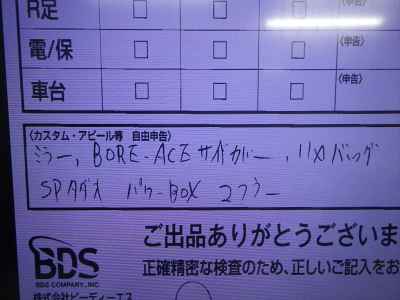 R足 □ □ □ 〈申告〉
電/保 □ □ □ 〈申告〉
車台 □ □ □ 〈申告〉
〈カスタム・アピール等 自由申告〉
ミラー, BORE-ACE サイドカバー, リヤバッグ
SPタダオ パワーBOX マフラー
ご出品ありがとうございま
BDS 正確精密な検査のため、正しいご記入をお
BDS COMPANY., INC.
株式会社ビーディーエス